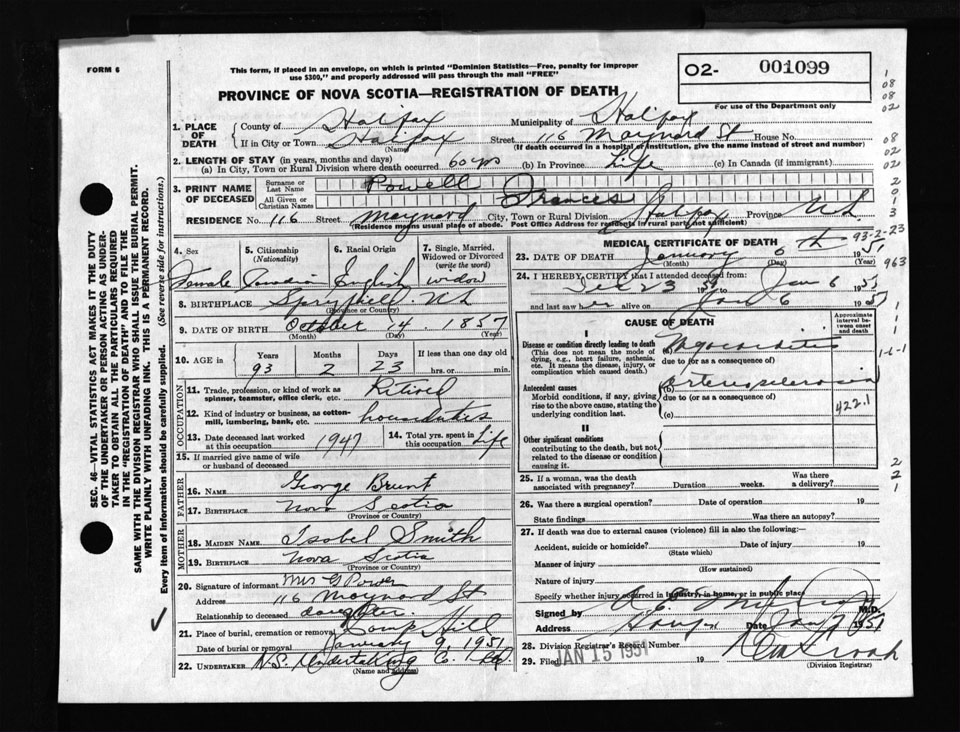 FORM 6
This form, if placed in an envelope, on which is printed "Dominion Statistics—Free, penalty for improper
use $300," and properly addressed will pass through the mail "FREE"
O2- 001099
For use of the Department only
PROVINCE OF NOVA SCOTIA—REGISTRATION OF DEATH
1. PLACE OF DEATH
County of Halifax Municipality of Halifax
If in City or Town Halifax Street 116 Maynard St House No.
(Name) (If death occurred in a hospital or institution, give the name instead of street and number)
2. LENGTH OF STAY (in years, months and days)
(a) In City, Town or Rural Division where death occurred 60 yrs (b) In Province Life (c) In Canada (if immigrant)
3. PRINT NAME OF DECEASED
Surname or Last Name Powell
All Given or Christian Names Frances
RESIDENCE No. 116 Street Maynard City, Town or Rural Division Halifax Province N.S.
(Residence means usual place of abode. Post Office Address for residents in rural part not sufficient)
4. Sex Female
5. Citizenship (Nationality) Canadian
6. Racial Origin English
7. Single, Married, Widowed or Divorced (write the word) widow
8. BIRTHPLACE Spryfield N.S.
(Province or Country)
9. DATE OF BIRTH October 14. 1857
(Month) (Day) (Year)
10. AGE in Years 93 Months 2 Days 23 If less than one day old hrs. or min.
OCCUPATION
11. Trade, profession, or kind of work as spinner, teamster, office clerk, etc. Retired
12. Kind of industry or business, as cotton-mill, lumbering, bank, etc.
13. Date deceased last worked at this occupation 1947
14. Total yrs. spent in this occupation Life
15. If married give name of wife or husband of deceased
FATHER
16. NAME George Brunt
17. BIRTHPLACE Nova Scotia
(Province or Country)
MOTHER
18. MAIDEN NAME Isobel Smith
19. BIRTHPLACE Nova Scotia
(Province or Country)
20. Signature of informant Mrs G Power
Address 116 Maynard St
Relationship to deceased daughter.
21. Place of burial, cremation or removal Long Hill
Date of burial or removal January 9 1951
22. UNDERTAKER N.S. Undertaking Co.
(Name and address)
MEDICAL CERTIFICATE OF DEATH
23. DATE OF DEATH January 6th 1951
(Month) (Day) (Year)
24. I HEREBY CERTIFY that I attended deceased from:
23 to Jan 6 1951
and last saw her alive on Jan 6 1951
CAUSE OF DEATH
Approximate interval between onset and death
I
Disease or condition directly leading to death (a) Myocarditis
(This does not mean the mode of dying, e.g., heart failure, asthenia, etc. It means the disease, injury, or complication which caused death.)
due to (or as a consequence of)
Antecedent causes (b) Arteriosclerosis
Morbid conditions, if any, giving rise to the above cause, stating the underlying condition last.
due to (or as a consequence of)
(c)
422.1
II
Other significant conditions
contributing to the death, but not related to the disease or condition causing it.
25. If a woman, was the death associated with pregnancy? Duration weeks. Was there a delivery?
26. Was there a surgical operation? Date of operation 19
State findings Was there an autopsy?
27. If death was due to external causes (violence) fill in also the following:—
Accident, suicide or homicide? Date of injury 19
(State which)
Manner of injury
(How sustained)
Nature of injury
Specify whether injury occurred in industry, in home, or in public place
Signed by M.D.
Address Date Jan 7 1951
28. Division Registrar's Record Number
29. Filed JAN 15 1951 19
(Division Registrar)
SEC. 46—VITAL STATISTICS ACT MAKES IT THE DUTY
OF THE UNDERTAKER OR PERSON ACTING AS UNDER-
TAKER TO OBTAIN ALL THE PARTICULARS REQUIRED
IN THE "REGISTRATION OF DEATH" AND TO FILE THE
SAME WITH THE DIVISION REGISTRAR WHO SHALL ISSUE THE BURIAL PERMIT.
WRITE PLAINLY WITH UNFADING INK. THIS IS A PERMANENT RECORD.
Every item of information should be carefully supplied. (See reverse side for instructions.)
1
08
08
02
08
02
02
2
0
1
3
93-2-23
963
1
1
1
1-6-1
2
2
1